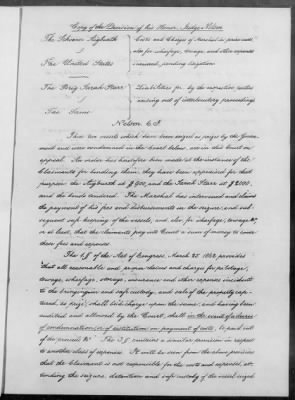 Copy of the Decision of his Honor Judge Nelson
The Schooner Aigburth
v
The United States
Costs and Charges of Marshal in prize cases
also for wharfage, towage, and other expenses
incurred pending litigation
The Brig Sarah Starr
v
The Same
Liabilities for by the respective parties
arising out of interlocutory proceedings
Nelson C.J.
These two vessels which have been seized as prize by the Govern
ment and were condemned in the Court below, are in this Court on
appeal. An order has heretofore been made at the instance of the
Claimants for bonding them, they have been appraised for that
purpose the Aigburth at $ 900, and the Sarah Starr at $ 2000
and the bonds tendered. The Marshal has intervened and claims
the payment of his fees and disbursements on the seizure and sub
sequent safe keeping of the vessels, and also for wharfage, towage &c,
or at least, that the claimants pay into Court a sum of money to cover
these fees and expenses
The 1 § of the Act of Congress March 25 1862 provides
"That all reasonable and proper claims and charges for pilotage,
towage, wharfage, storage, insurance and other expenses incident
to the bringing in and safe custody, and sale of the property cap-
tured, as prize, shall be a charge upon the same, and having been
audited and allowed by the Court, shall in the event of a decree
of condemnation, or of restitution on payment of costs, be paid out
of the proceeds &c" The 3 § contains a similar provision in respect
to another class of expenses. It will be seen from the above provisions
that the Claimant is not responsible for the costs and expenses, at-
tending the seizure, detention and safe custody of the vessel seized